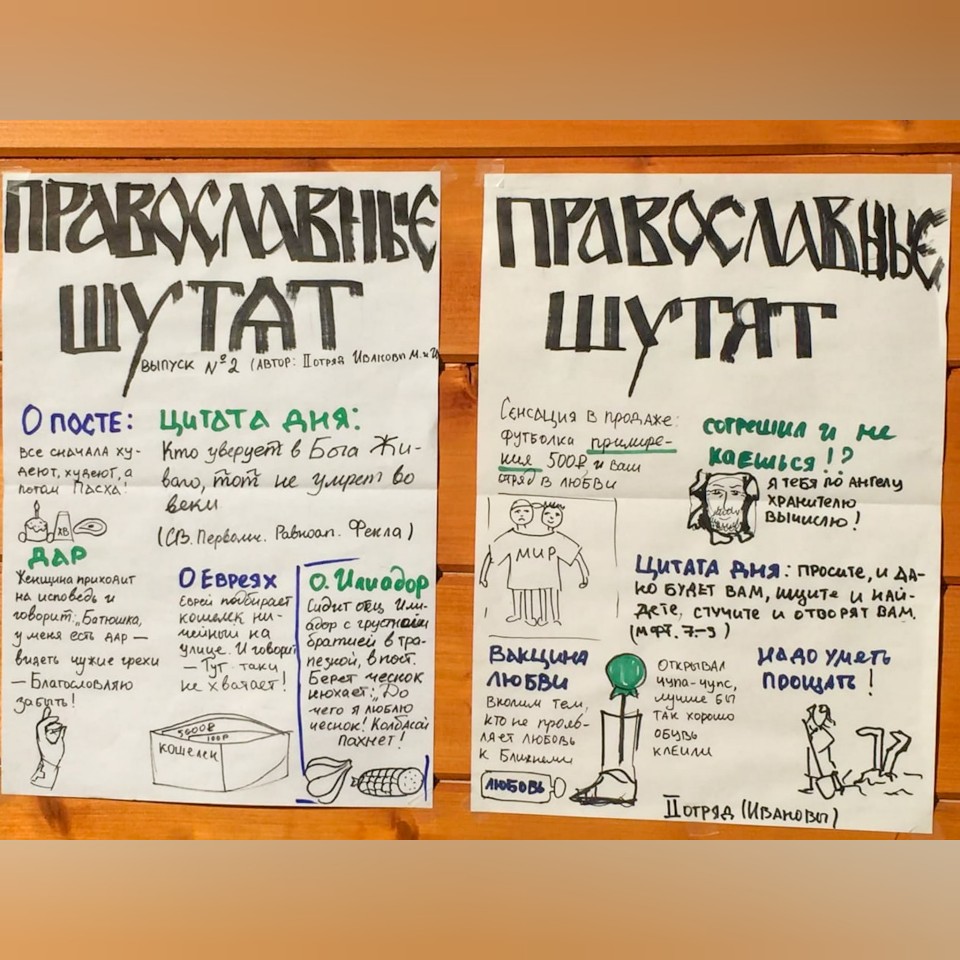 ПРАВОСЛАВНЫЕ
ШУТЯТ
ВЫПУСК №2 (АВТОР: II ОТРЯД
О ПОСТЕ:
все сначала ху-
деют, худеют, а
потом Пасха!
ХВ
ДАР
Женщина приходит
на исповедь и
говорит: „Батюшка,
у меня есть дар —
видеть чужие грехи
— Благословляю
забыть!
ЦИТАТА ДНЯ:
Кто уверует в Бога Жи-
ваго, тот не умрет во
веки
(СВ. Первомч. Равноап. Фекла)
О ЕВРЕЯХ
Еврей подбирает
кошелек ни-
чейный на
улице. И говорит
— Тут таки
не хватает!
5000₽
100₽
КОШЕЛЕК
О. Илиадор
Сидит отец Или-
адор с грустной
братией в тра-
пезной, в пост.
Берет чеснок
нюхает: „До
чего я люблю
чеснок! Колбасой
пахнет!
ПРАВОСЛАВНЫЕ
ШУТЯТ
Сенсация в продаже:
футболка примире-
ния 500₽ и ваш
отряд в любви
МИР
СОГРЕШИЛ И НЕ
КАЕШЬСЯ!?
Я ТЕБЯ ПО АНГЕЛУ
ХРАНИТЕЛЮ
ВЫЧИСЛЮ!
ЦИТАТА ДНЯ: ПРОСИТЕ, И ДА-
НО БУДЕТ ВАМ, ИЩИТЕ И НАЙ-
ДЕТЕ, СТУЧИТЕ И ОТВОРЯТ ВАМ.
(МФТ. 7-9)
ВАКЦИНА
ЛЮБВИ
Вколим тем,
кто не прояв-
ляет любовь
к Ближнему
ЛЮБОВЬ
ОТКРЫВАЛ
ЧУПА-ЧУПС,
ЛУЧШЕ БЫ
ТАК ХОРОШО
ОБУВЬ
КЛЕИЛИ
НАДО УМЕТЬ
ПРОЩАТЬ!
II ОТРЯД (ИВАНОВЫ)